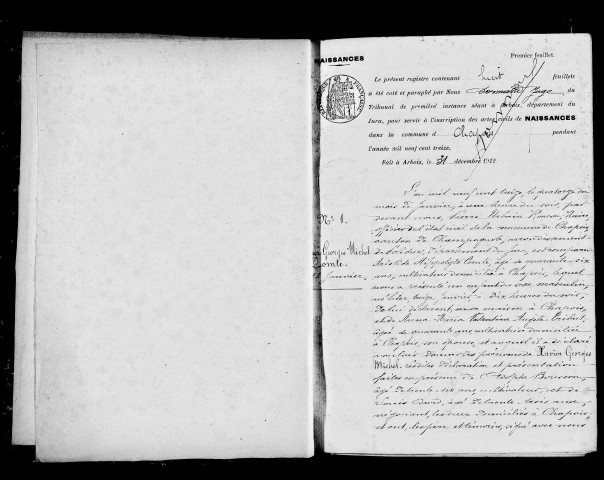 NAISSANCES
Premier feuillet.
Le présent registre contenant huit feuillets
a été coté et paraphé par Nous Juge du
Tribunal de première instance séant à Arbois, département du
Jura, pour servir à l'inscription des actes civils de NAISSANCES
dans la commune d Chapois pendant
l'année mil neuf cent treize.
Fait à Arbois, le 31 décembre 1912.
L'an mil neuf cent treize, le quatorze du
mois de janvier, à une heure du soir, par
devant nous, Pierre Maire,
officier de l'état civil de la commune de Chapois
canton de Champagnole, arrondissement
de Poligny, département du Jura, est comparu
Aristide Hippolyte Comte, âgé de quarante-six
ans, cultivateur domicilié à Chapois, lequel
nous a présenté un enfant du sexe masculin,
né hier, treize janvier, à dix heures du soir,
de lui déclarant, en sa maison à Chapois,
et de Anna Maria Valentine Angèle
âgée de quarante ans, cultivatrice domiciliée
à Chapois, son épouse, et auquel il a déclaré
vouloir donner les prénoms de Xavier Georges
Michel. Lesdites déclaration et présentation
faites en présence de Adolphe
âgé de trente-six ans, cultivateur, et de
Louis David, âgé de trente-trois ans,
négociant, les deux domiciliés à Chapois,
et ont, les père et témoins, signé avec nous
No 1.
Georges Michel
Comte.
janvier.